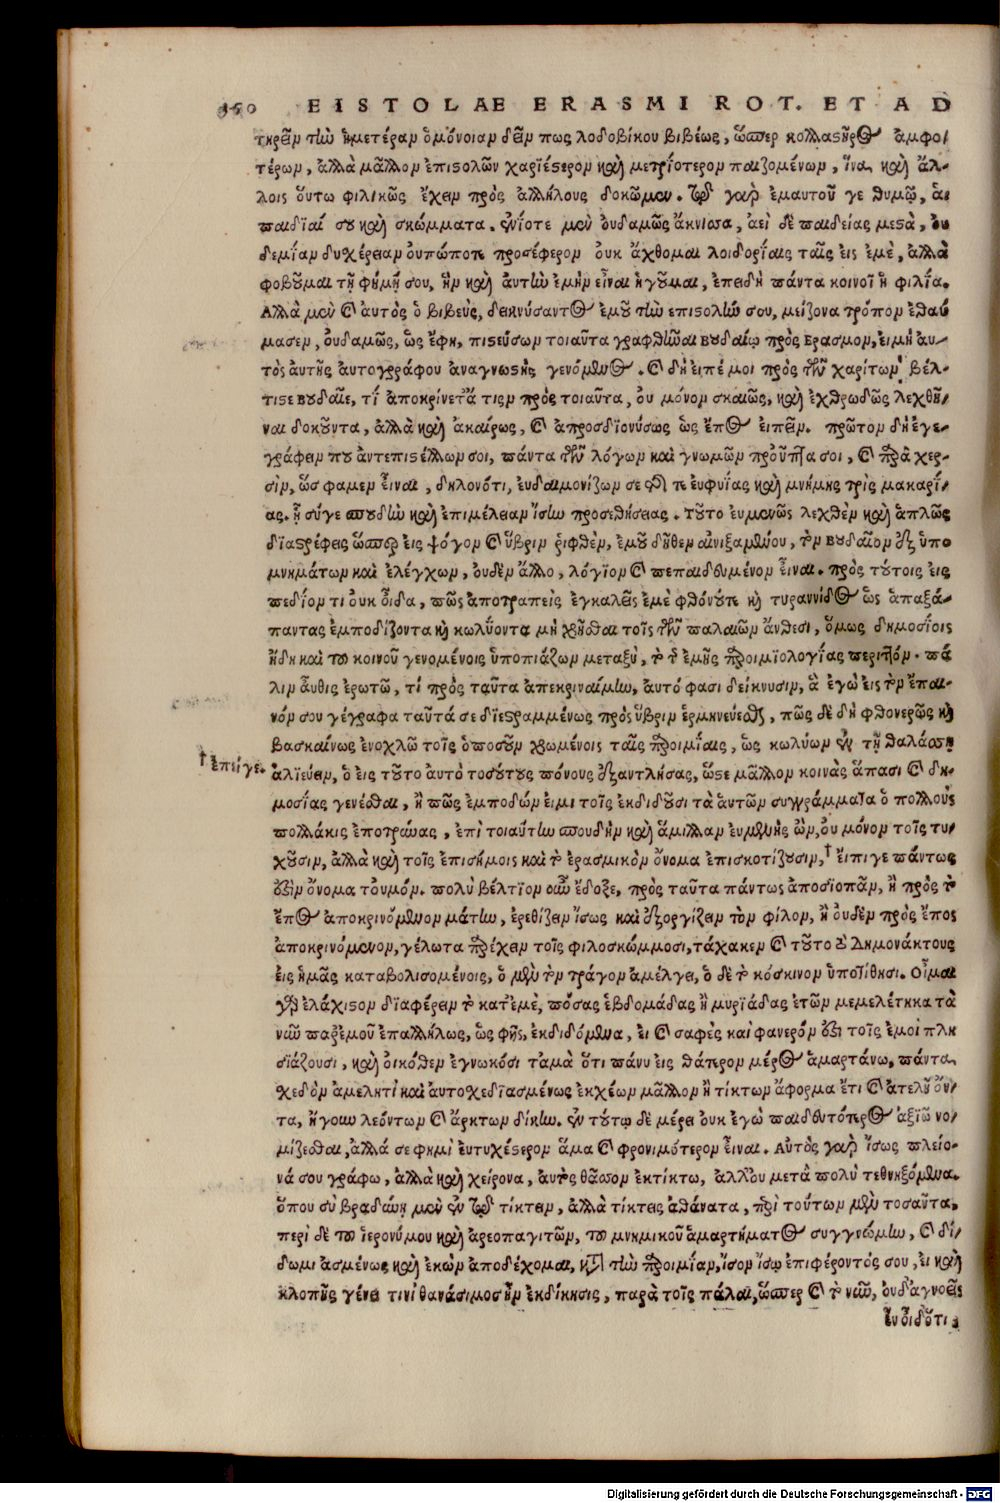 150 EISTOLAE ERASMI ROT. ET AD
τηρεῖν τὴν ἡμετέραν ὁμόνοιαν δεῖν πως λοδοβίκου βιβέως, ὥσπερ κολλαστῆρος ἀμφο-
τέρων, ἀλλὰ μᾶλλον ἐπιστολῶν χαριέστερον καὶ μετριότερον παιζομένων, ἵνα καὶ ἄλ-
λοις οὕτω φιλικῶς ἔχειν πρὸς ἀλλήλους δοκῶμεν. γὰρ ἐμαυτοῦ γε θυμῷ, ἁι
παιδιαί σου καὶ σκώμματα. ἐνίοτε μὲν οὐδαμῶς ἄκνισα, ἀεὶ δὲ παιδείας μεστὰ, οὐ
δεμίαν δυχέρειαν οὐπώποτε προσέφερον οὐκ ἄχθομαι λοιδορίαις ταῖς εἰς ἐμὲ, ἀλλὰ
φοβοῦμαι τῇ φήμῃ σου, ἣν καὶ αὐτὴν ἐμὴν εἶναι ἡγοῦμαι, ἐπειδὴ πάντα κοινοῖ ἡ φιλία.
Ἀλλὰ μὲν καὶ αὐτὸς ὁ βιβεὺς, δεικνύσαντος ἐμοῦ τὴν ἐπιστολήν σου, μείζονα τρόπον ἐθαύ
μασεν, οὐδαμῶς, ὡς ἔφη, πιστεύσων τοιαῦτα γραφθῆναι βουδαίῳ πρὸς Ερασμον, εἰ μὴ αὐ-
τὸς αὐτῆς αὐτογράφου ἀναγνώστης γενόμενος. καὶ δὴ εἰπέ μοι πρὸς τῶν χαρίτων βέλ-
τιστε βουδαῖε, τί ἀποκρίνετό τις πρὸς τοιαῦτα, οὐ μόνον σκαιῶς, καὶ ἐχθρωδῶς λεχθῆ-
ναι δοκοῦντα, ἀλλὰ καὶ ἀκαίρως, καὶ ἀπροσδιονύσως ὡς ἔπος εἰπεῖν. πρῶτον δὴ ἐγε-
γράφειν που ἀντεπιστέλλων σοι, πάντα τῶν λόγων καὶ γνωμῶν προὖπτα σοι, καὶ παρὰ χερ-
σὶν, ὥς φαμεν εἶναι, δηλονότι, εὐδαιμονίζων σε διά τε εὐφυΐας καὶ μνήμης τρὶς μακαρί-
ας. ᾗ σύγε σπουδὴν καὶ ἐπιμέλειαν ἴσην προσεθήσειας. Τοῦτο εὐμενῶς λεχθὲν καὶ ἁπλῶς
διαστρέφεις ὥσπερ εἰς ψόγον καὶ ὕβριν ῥιφθὲν, ἐμοῦ δῆθεν αἰνιξαμένου, τὸν βουδαῖον ἐξ ὑπο
μνημάτων καὶ ἐλέγχων, οὐδὲν ἄλλο, λόγιον καὶ πεπαιδευμένον εἶναι. πρὸς τούτοις εἰς
πεδίον τι οὐκ οἶδα, πῶς ἀποτραπεὶς ἐγκαλεῖς ἐμὲ φθόνου τε καὶ τυραννίδος ὡς ἁπαξά-
παντας ἐμποδίζοντα καὶ κωλύοντα μὴ χρῆσθαι τοῖς τῶν παλαιῶν ἄνθεσι, ὅμως δημοσίοις
ἤδη καὶ τοῦ κοινοῦ γενομένοις ὑποπιάζων μεταξὺ, τὸ τῆς ἐμῆς παροιμιολογίας περιττόν. πά
λιν αὖθις ἐρωτῶ, τί πρὸς ταῦτα ἀπεκριναίμην, αὐτό φασι δείκνυσιν, ἃ ἐγὼ εἰς τὸν ἔπαι-
νόν σου γέγραφα ταῦτά σε διεστραμμένως πρὸς ὕβριν ἑρμηνεύεσθαι, πῶς δὲ δὴ φθονερῶς καὶ
βασκαίνως ἐνοχλῶ τοῖς ὁποσοῦν χρωμένοις ταῖς παροιμίαις, ὡς κωλύων ἐν τῇ θαλάσσῃ
†ἐπείγε. ἁλιεύειν, ὁ εἰς τοῦτο αὐτὸ τοσούτους πόνους ἐξαντλήσας, ὥστε μᾶλλον κοινὰς ἅπασι καὶ δη-
μοσίας γενέσθαι, ἢ πῶς ἐμποδών εἰμι τοῖς ἐκδιδοῦσι τὰ αὑτῶν συγγράμματα ὁ πολλοὺς
πολλάκις ἐποτρύνας, ἐπὶ τοιαύτην σπουδὴν καὶ ἅμιλλαν εὐμενὴς ὢν, οὐ μόνον τοῖς τυ-
χοῦσιν, ἀλλὰ καὶ τοῖς ἐπισήμοις καὶ τὸ ἐρασμικὸν ὄνομα ἐπισκοτίζουσιν,† ἔιπι γε πάντως
ἐστὶν ὄνομα τοὐμόν. πολὺ βέλτιον οὖν ἔδοξε, πρὸς ταῦτα πάντως ἀποσιοπᾶν, ἢ πρὸς τὸ
ἔπος ἀποκρινόμενον μάτην, ἐρεθίζειν ἴσως καὶ ἐξοργίζειν τὸν φίλον, ἢ οὐδὲν πρὸς ἔπος
ἀποκρινόμενον, γέλωτα παρέχειν τοῖς φιλοσκώμμοσι, τάχακεν καὶ τοῦτο τοῦ Δημονάκτους
εἰς ἡμᾶς καταβολισομένοις, ὁ μὲν τὸν τράγον ἀμέλγει, ὁ δὲ τὸ κόσκινον ὑποτίθησι. Οἶμαι
γὰρ ἐλάχιστον διαφέρειν τὸ κατ' ἐμὲ, πόσας ἑβδομάδας ἢ μυριάδας ἐτῶν μεμελέτηκα τὰ
νῦν παρ' ἐμοῦ ἐπαλλήλως, ὡς φῂς, ἐκδιδόμενα, εἰ καὶ σαφὲς καὶ φανερόν ἐστι τοῖς ἐμοὶ πλη
σιάζουσι, καὶ οἴκοθεν ἐγνωκόσι τἀμὰ ὅτι πάνυ εἰς θάτερον μέρος ἁμαρτάνω, πάντα
χεδὸν ἀμελητὶ καὶ αὐτοχεδιασμένως ἐκχέων μᾶλλον ἢ τίκτων ἄφορμα ἔτι καὶ ἀτελῆ ὄν-
τα, ἤγουν λεόντων καὶ ἄρκτων δίκην. ἐν τούτῳ δὲ μέρει οὐκ ἐγὼ παιδευτότερος ἀξιῶ νο-
μίζεσθαι, ἀλλά σε φημὶ εὐτυχέστερον ἅμα καὶ φρονιμότερον εἶναι. Αὐτὸς γὰρ ἴσως πλείο-
νά σου γράφω, ἀλλὰ καὶ χείρονα, αὐτὸς θᾶσσον ἐκτίκτω, ἀλλ' οὐ μετὰ πολὺ τεθνηξόμενα.
ὅπου σὺ βραδύνῃ μὲν ἐν τῷ τίκτειν, ἀλλὰ τίκτεις ἀθάνατα, περὶ τούτων μὲν τοσαῦτα,
περὶ δὲ τοῦ ἱερονύμου καὶ ἀρεοπαγιτῶν, τοῦ μνημικοῦ ἁμαρτήματος συγγνώμην, καὶ δί-
δωμι ἀσμένως καὶ ἑκὼν ἀποδέχομαι, κατὰ τὴν παροιμίαν, ἴσον ἴσῳ ἐπιφέροντός σου, εἰ καὶ
κλοπῆς γένει τινὶ θανάσιμος ἦν ἐκδίκησις, παρὰ τοῖς πάλαι, ὥσπερ καὶ τὸ νῦν, οὐδ' ἀγνοεῖς
ἓν οἶδ' ὅτι
Digitalisierung gefördert durch die Deutsche Forschungsgemeinschaft - DFG